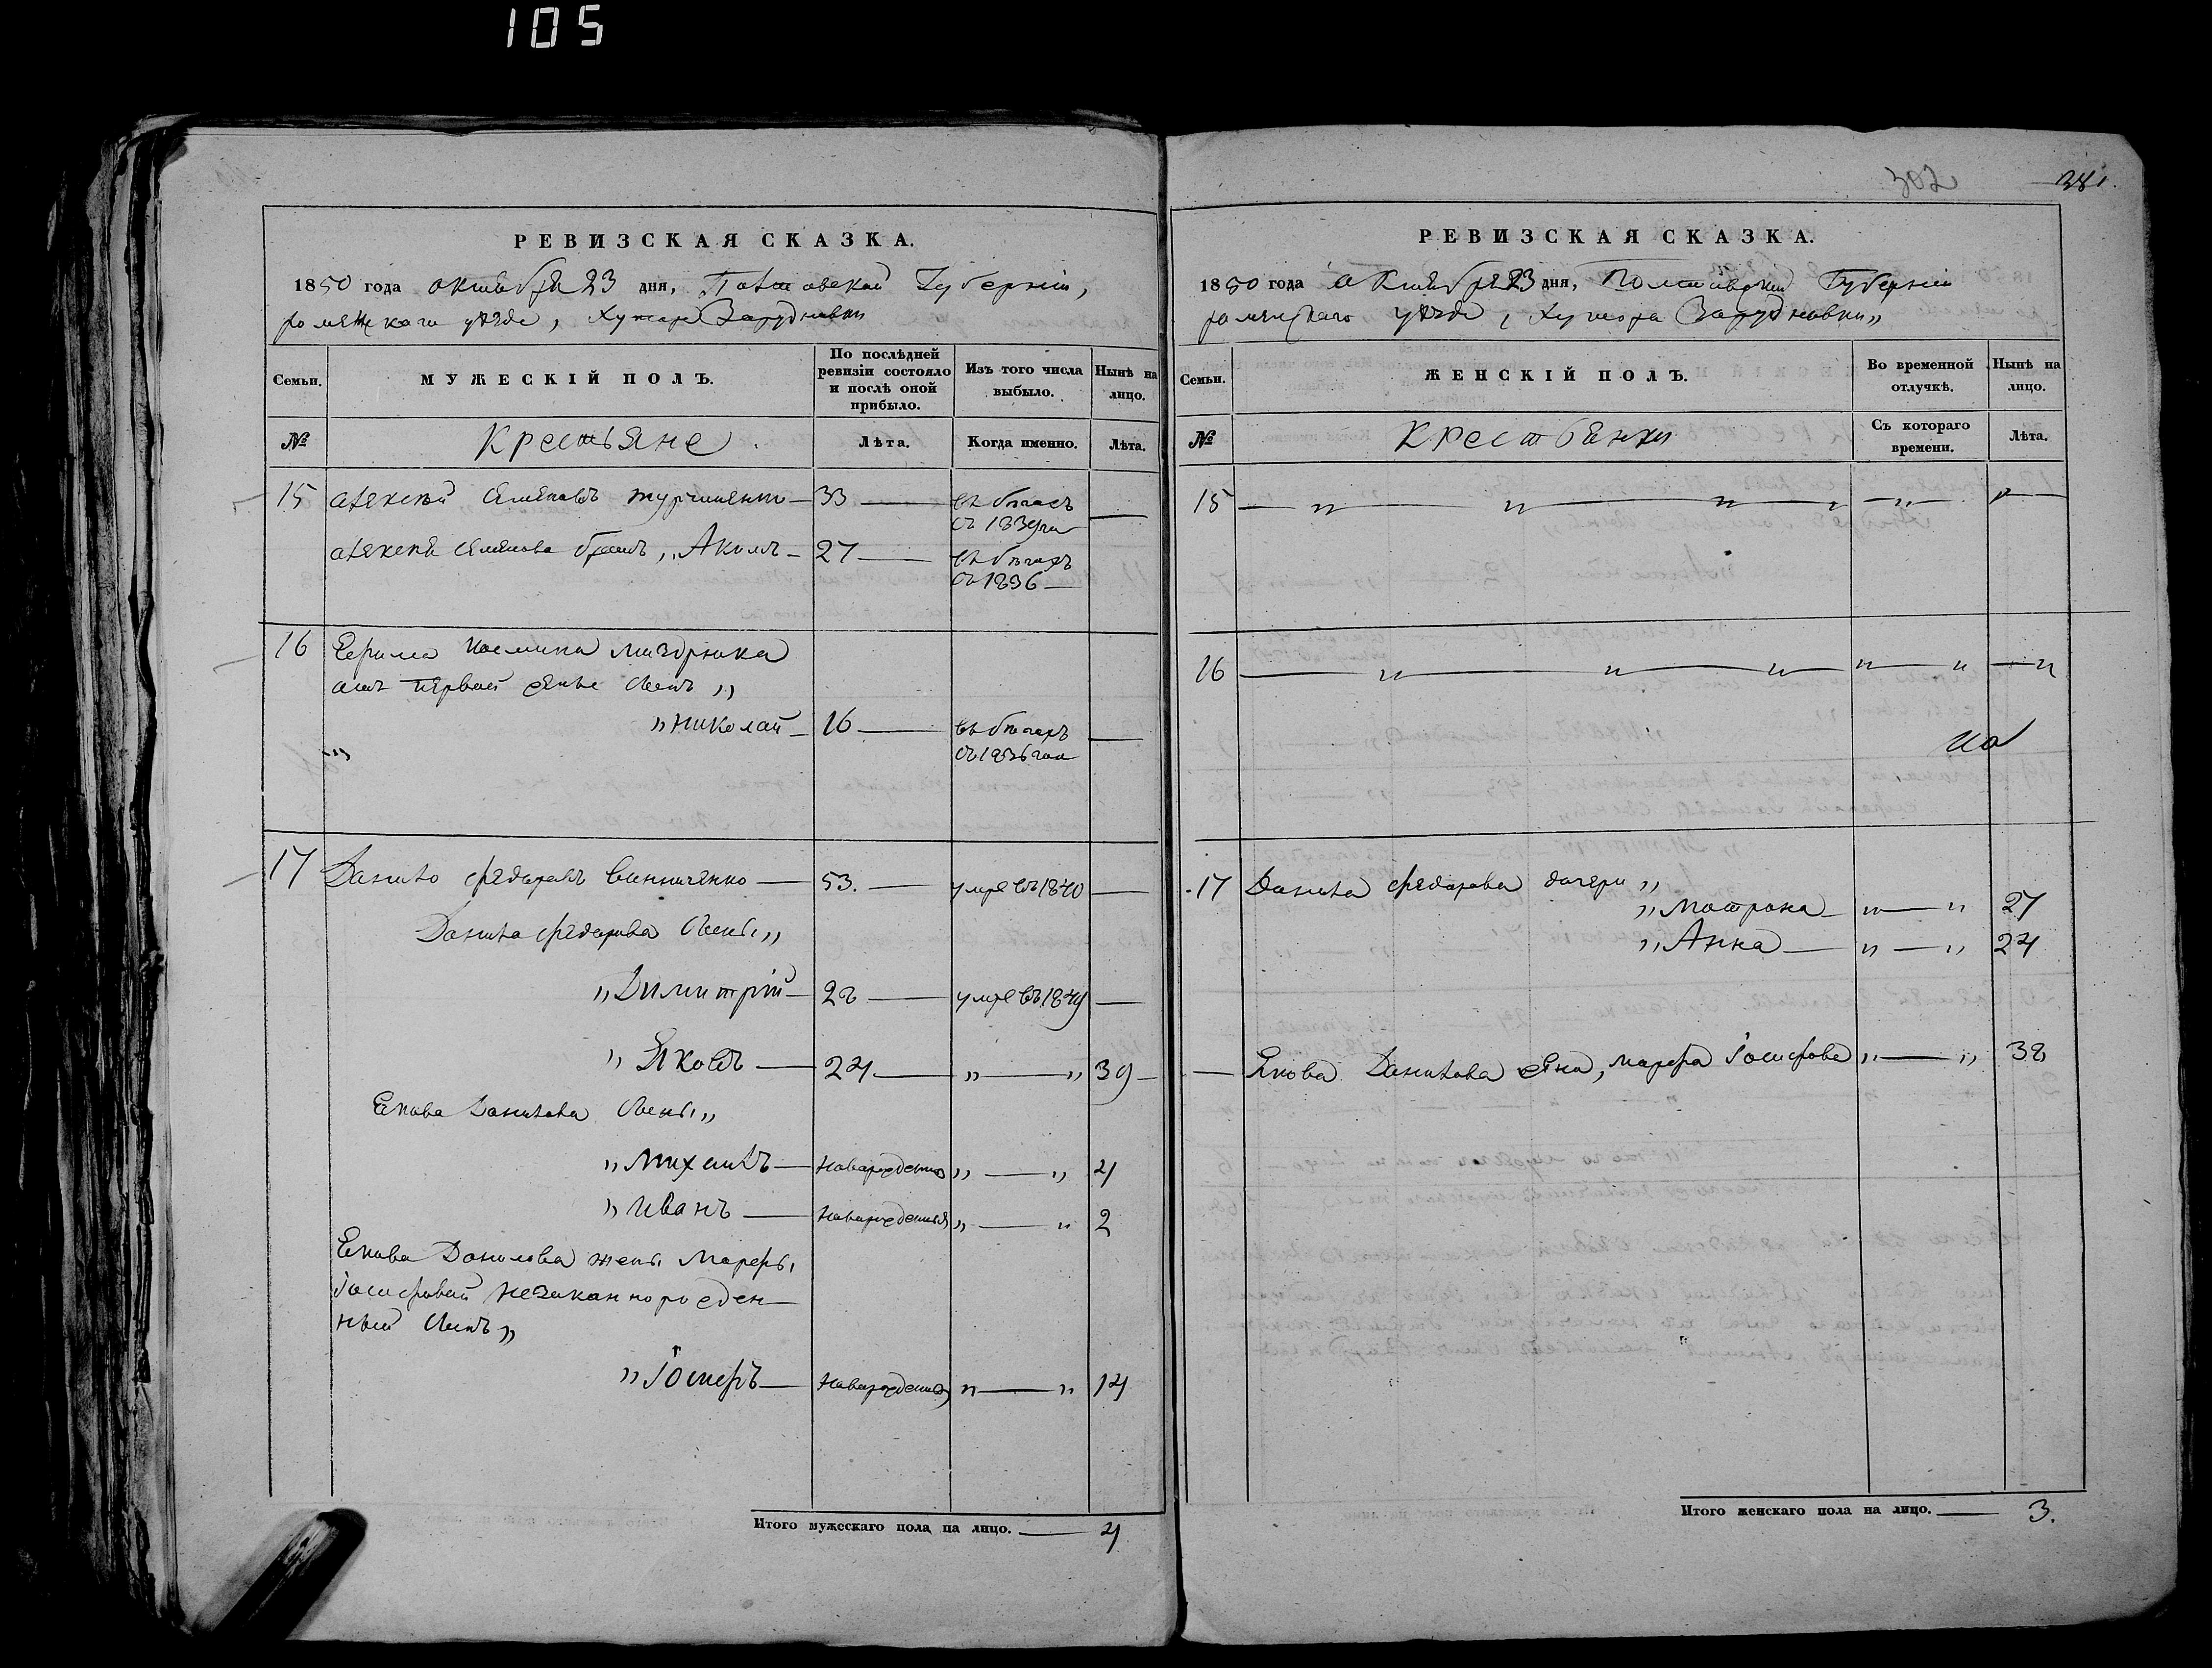 105
302
381.
РЕВИЗСКАЯ СКАЗКА.
1850 года октября 23 дня, Полтавской Губернiи,
роменскаго уѣзда, Хутора Заруднавки
Семьи.
МУЖЕСКIЙ ПОЛЪ.
По послѣдней ревизiи состояло и послѣ оной прибыло.
Изъ того числа выбыло.
Нынѣ на лицо.
№
Крестьяне
Лѣта.
Когда именно.
Лѣта.
15 Алексѣй Семеновъ — 33 — въ бѣгахъ
съ 1839 —
Алексѣя Семенова братъ, „ — 27 — въ бѣгахъ
съ 1836 —
16 Ефима
отъ первой жены сынъ „
„ Николай — 16 — въ бѣгахъ —
съ 1836 года
17 Данило Федоровъ Винниченко — 53. — умре въ 1840 —
Данила Федорова сыны „
„ Димитрiй — 28 — умре въ 1849 —
„ Яковъ — 24 — „ — „ 39 —
Якова Данилова сыны „
„ Михаилъ — новорожденны „ — „ 4
„ Иванъ — новорожденны „ — „ 2
Якова Данилова жены Марфы
Iосифовой незаконнорожден-
ный сынъ „
„ Iосифъ — новорожденны „ — „ 14
Итого мужескаго пола на лицо. — 4
РЕВИЗСКАЯ СКАЗКА.
1850 года октября 23 дня, Полтавской Губернiи
роменскаго уѣзда, Хутора Заруднавки „
Семьи.
ЖЕНСКIЙ ПОЛЪ.
Во временной отлучкѣ.
Нынѣ на лицо.
№
Крестьянки
Съ котораго времени.
Лѣта.
15 — „ — „ — „ — „ — „ — „ —
16 — „ — „ — „ — „ — „ — „
17 Данила Федорова дочери „
„ Матрона — „ — „ 27
„ Анна — „ — „ 24
— Якова Данилова жена, Марфа Iосифова „ — „ 38
Итого женскаго пола на лицо. — 3.